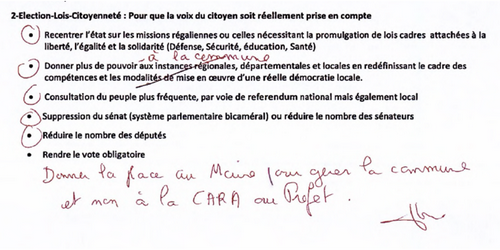 2-Election-Lois-Citoyenneté : Pour que la voix du citoyen soit réellement prise en compte
• Recentrer l'état sur les missions régaliennes ou celles nécessitant la promulgation de lois cadres attachées à la
liberté, l'égalité et la solidarité (Défense, Sécurité, éducation, Santé)
à la commune
• Donner plus de pouvoir aux instances régionales, départementales et locales en redéfinissant le cadre des
compétences et les modalités de mise en œuvre d'une réelle démocratie locale.
• Consultation du peuple plus fréquente, par voie de referendum national mais également local
• Suppression du sénat (système parlementaire bicaméral) ou réduire le nombre des sénateurs
• Réduire le nombre des députés
• Rendre le vote obligatoire
Donner la place au Maire pour gérer la commune
et non à la CARA ou Préfet.